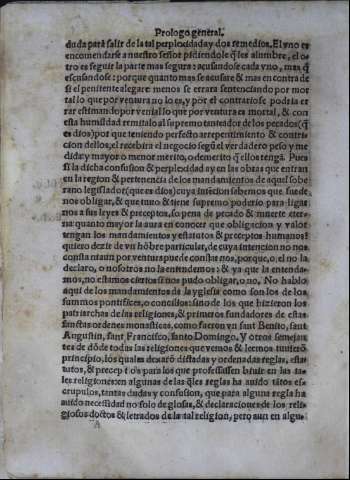 Prologo general.
duda para salir de la tal perplexidad ay dos remedios. El vno es
encomendarse a nuestro señor pidiendole q̃ les alumbre, el o-
tro es seguir la parte mas segura: acusandose cada vno, mas q̃
escusandose: porque quanto mas se acusare & mas en contra de
si el penitente alegare menos se errara sentenciando por mor
tal lo que por ventura no lo es, y por el contrario se podria er
rar estimando por venial lo que por ventura es mortal, & con
esta humildad remitalo al supremo tanteador de los pecados (q̃
es dios) por que teniendo perfecto arrepentimiento & contri
cion dellos, el recebira el negocio segũ el verdadero peso y me
dida y mayor o menor merito, o demerito q̃ ellos tengã. Pues
si la dicha confusion & perplexidad ay en las obras que entran
en la region & pertenencia de los mandamientos de aquel sobe
rano legislador (que es dios) cuya intẽcion sabemos que fue de
nos obligar, & que tuuo & tiene supremo poderio para ligar
nos a sus leyes & preceptos, so pena de pecado & muerte eter-
na: quanto mayor la aura en conocer que obligacion y valor
tengan los mandamientos y estatutos & preceptos humanos:
quiero dezir de vn hõbre particular, de cuya intencion no nos
consta ni aun por ventura puede constarnos, porque, o el no la
declaro, o nosotros no la entendemos: & ya que la entenda-
mos, no estamos ciertos si nos pudo obligar, o no. No hablo
aqui de los mandamientos de la yglesia como son los de los
summos pontifices, o concilios: sino de los que hizieron los
patriarchas de las religiones, & primeros fundadores de estas
sanctas ordenes monasticas, como fueron vn sant Benito, sant
Augustin, sant Francisco, santo Domingo, Y otros semejan
tes de dõde todas las religiones que vemos & leemos tuuierõ
principio, los quales dexarõ dictadas y ordenadas reglas, esta-
tutos, & preceptos para los que professassen biuir en las ta-
les religiones: en algunas de las q̃les reglas ha auido tãtos es-
crupulos, tantas dudas y confusion, que para alguna regla ha
auido necessidad no solo de glosas, & declaraciones de los reli-
giosos doctos & letrados de la tal religion, pero aun en algu-
A